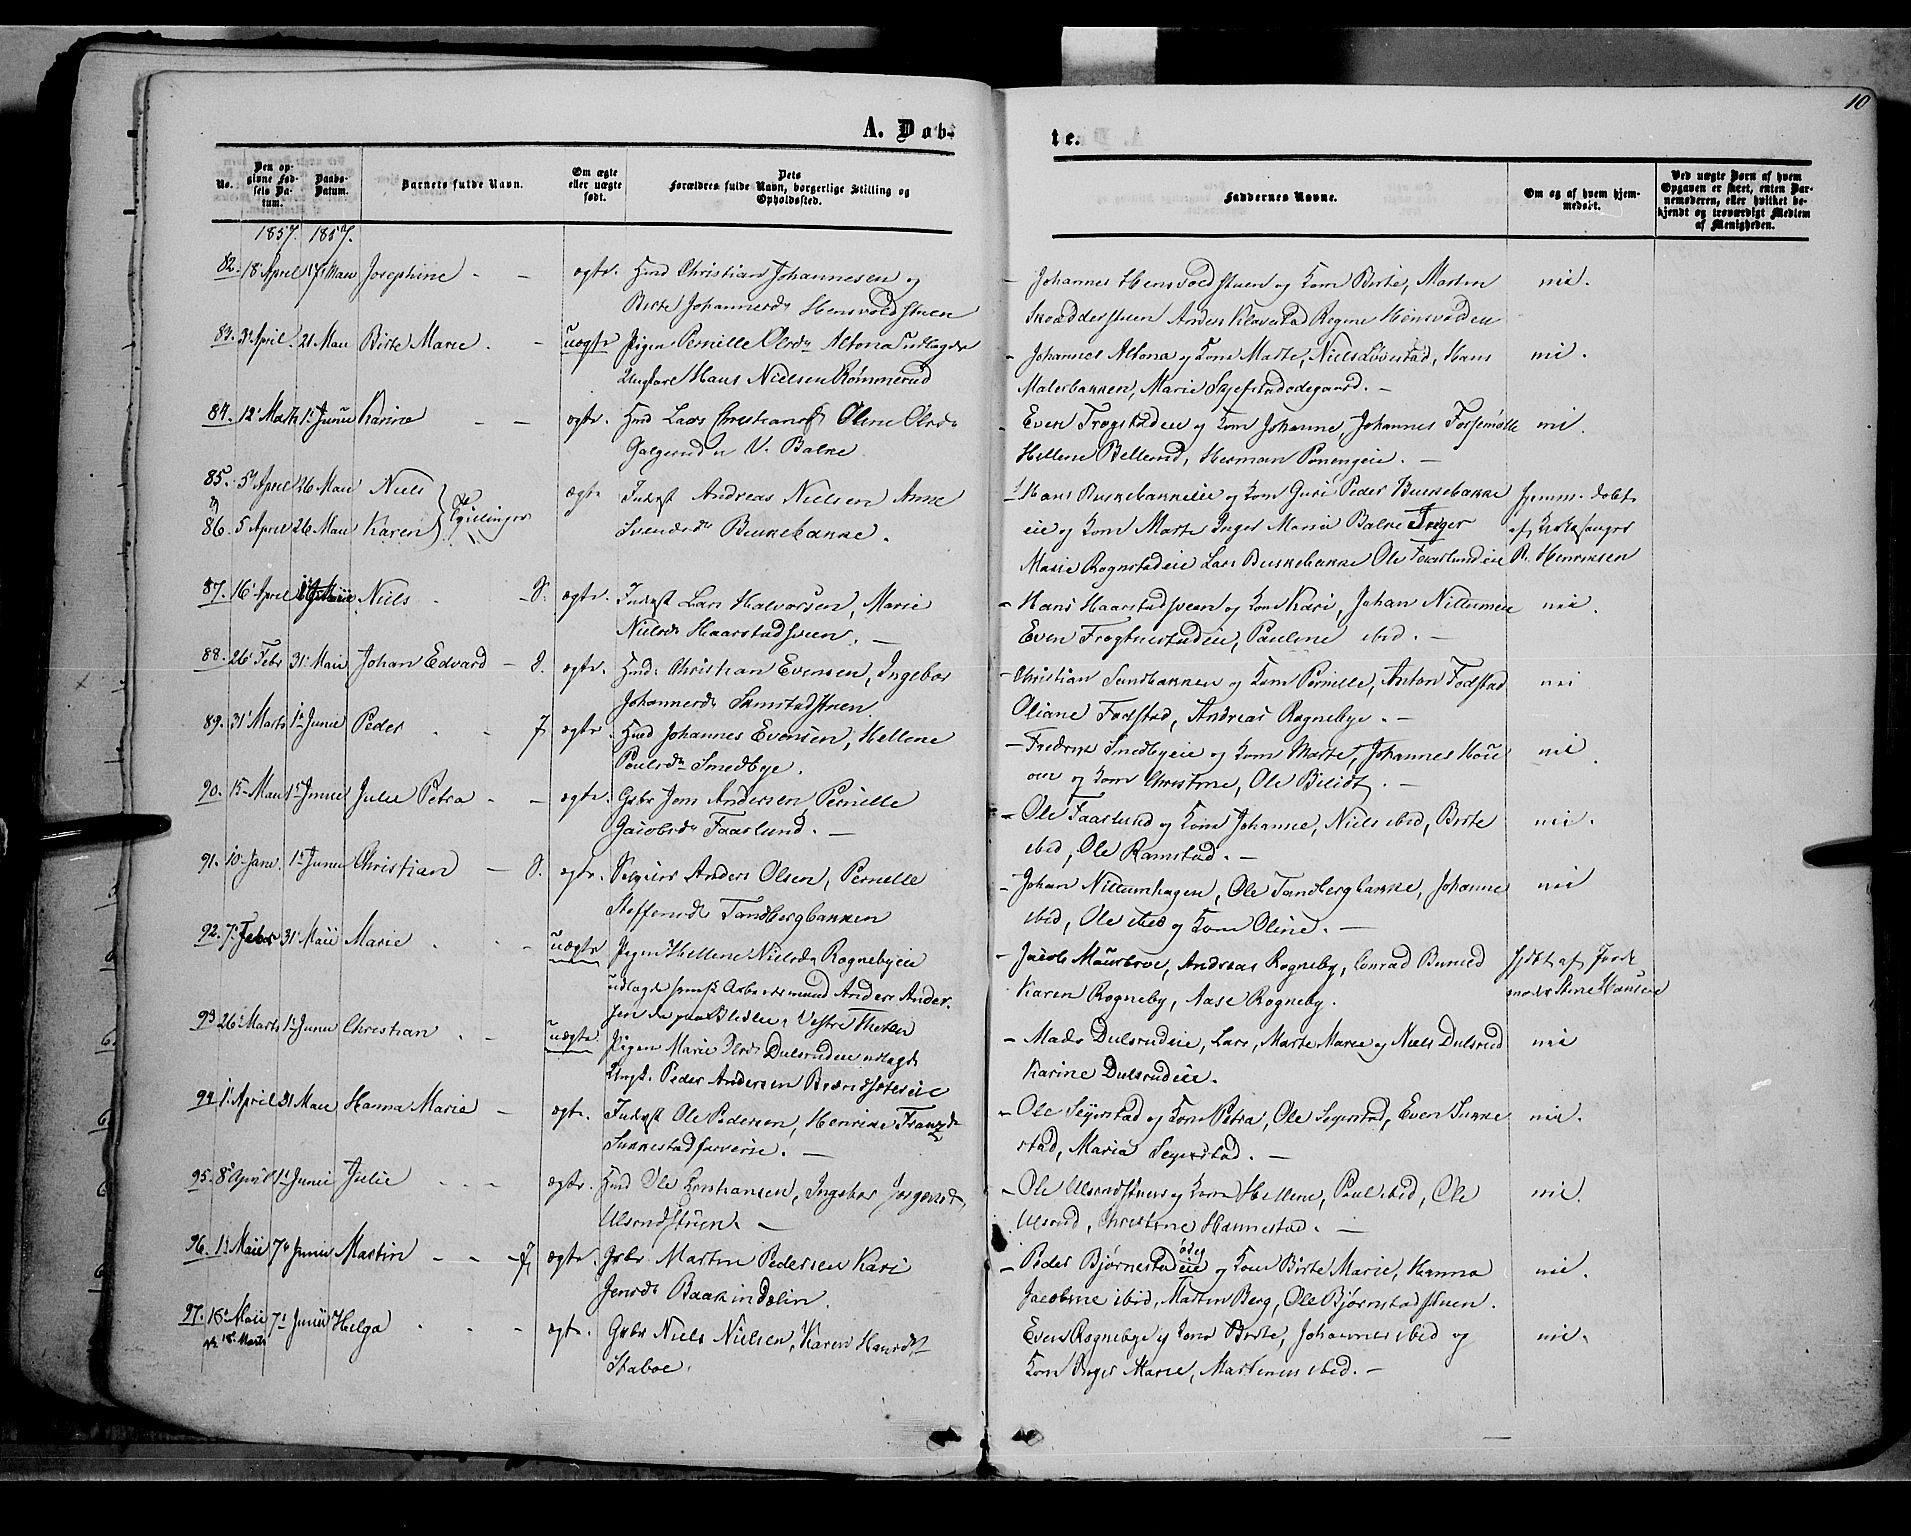 10
A. Døb-
te.
No.
Den op-
givne Fød-
sels Da-
tum.
Daabs-
Datum.
Barnets fulde Navn.
Om ægte
eller uægte
født.
Dets
Forældres fulde Navn, borgerlige Stilling og
Opholdssted.
Faddernes Navne.
Om og af hvem hjem-
medøbt.
Ved uægte Børn af hvem
Opgaven er skeet, enten Bar-
nemoderen, eller hvilket be-
kjendt og troværdigt Medlem
af Menigheden.
1857. 1857.
82. 18 April 17 Maii Josephine - - ægte. Huusmd Christian Johannesen og
Birte Johannesdr Hensvoldstuen
- Johannes Hensvoldstuen og Kone Birte, Martin
Skrædderstuen Anders Klavestad Regine Hensvolden
nei.
83. 3 April. 21 Maii Birte Marie. - uægte Pigen Pernille Olsdr Altona udlagde
Ungkarl Hans Nielsen Rømmerud
- Johannes Altona og Kone Marte, Niels Løvestad, Hans
Malerbakken, Marie Skjefstadødegaard. -
nei.
84. 12 Marts 1 Junii Karine - - ægte. Huusmd Lars Christians Oline Olsdr
Galgerud u V. Balke.
- Even Frogstadeie og Kone Johanne, Johannes Forsemølle
Hellene Bellerud, Herman Ponengeie. -
nei.
85. 5 April 26 Maii Niels
og
86. 5 April 26 Maii Karen
Tvillinger
ægte Inderst Andreas Nielsen Anne
Svendsdr Buskebakke.
Hans Buskebakkeie og Kone Guri Peder Buskebakke
eie og Kone Marte Inger Maria Balke Inger
Marie Rognstadeie Lars Buskebakke Ole Faaslundeie
hjemme døbt
af Kirkesanger
R. Henriksen
87. 16 April Niels - S. ægte. Inderst Lars Halvorsen, Marie
Nielsdr Haarstadsveen. -
- Hans Haarstadsveen og Kone Kari, Johan Nillumeie
Even Frogtnestadeie, Pauline ibid. -
nei.
88. 26 Febr 31 Maii Johan Edvard - S. ægte. Huusmd Christian Evensen, Ingebor
Johannesdr Samstadstuen
- Christian Sandbakken og Kone Pernille, Anton Fodstad
Oliane Fodstad, Andreas Rognebye. -
nei
89. 31 Marts 1 Junii Peder - - J ægte. Huusmd Johannes Evensen, Hellene
Poulsdr Smedbye.
- Fredrik Smedbyeie og Kone Marte, Johannes Hou
om og Kone Christine, Ole Bilidt. -
nei
90. 15 Maii 1 Junii Julie Petra - - ægte. Gbr Jens Andersen Pernille
Jacobsdr Faaslund. -
- Ole Faaslund og Kone Johanne, Niels ibid, Birte
ibid, Ole Ramstad. -
nei.
91. 10 Janr. 1 Junii Christian - S. ægte. Anders Olsen, Pernille
Steffensdr Tandbergbakken
- Johan Nillumhagen, Ole Tandbergbakke, Johanne
ibid, Ole ibid og Kone Oline. -
nei
92. 7 Febr 31 Maii Marie - - - uægte Pigen Hellene Nielsdr Rognebyeie
udlagde Arbeidsmand Anders Ander
sen da paa Vestre Thoten
- Jacob Maurbroe, Andreas Rogneby, Conrad Buruld
Karen Rogneby, Aase Rogneby.
hjdøbt af Jorde
moder Stine Hansen
93. 26 Marts 1 Junii Christian - - uægte. Pigen Marie Olsdr Dulsrudeie udlagde
Ungk. Peder Andersen Brændsætereie
- Mads Dulsrudeie, Lars, Marte Marie og Niels Dulsrud
Karine Dulsrudeie.
nei
94. 1 April 31 Maii Hanna Marie - ægte. Inderst Ole Pedersen, Henrike Frandsdr
Sukkestadfarverie. -
- Ole Seyerstad og Kone Petra, Ole Seyerstad, Even Sukke
stad, Maria Seyerstad. -
nei.
95. 8 April 1 Junii Julie - - - ægte. Huusmd Ole Christiansen, Ingebor Jørgensdr
Ulsrudstuen. -
- Ole Ulsrudstuen og Kone Hellene, Poul ibid, Ole
Ulsrud, Christine Hannestad. -
nei.
96. 1 Maii 7 Junii Martin - - - J ægte. Gbr. Martin Pedersen Kari
Jensdr Baakindalin.
- Peder Bjørnestadeie og Kone Birte Marie, Hanna
Jacobine ibid, Martin Berg, Ole Bjørnstadstuen.
nei.
97. 18 Maii 7 Junii Helga - - - ægte. Gbr Niels Nielsen, Karen Hansdr
18 Marts
Staboe.
Even Rognebye og Kone Birte, Johannes ibid og
Kone Inger Marie, Martinus ibid. -
nei.